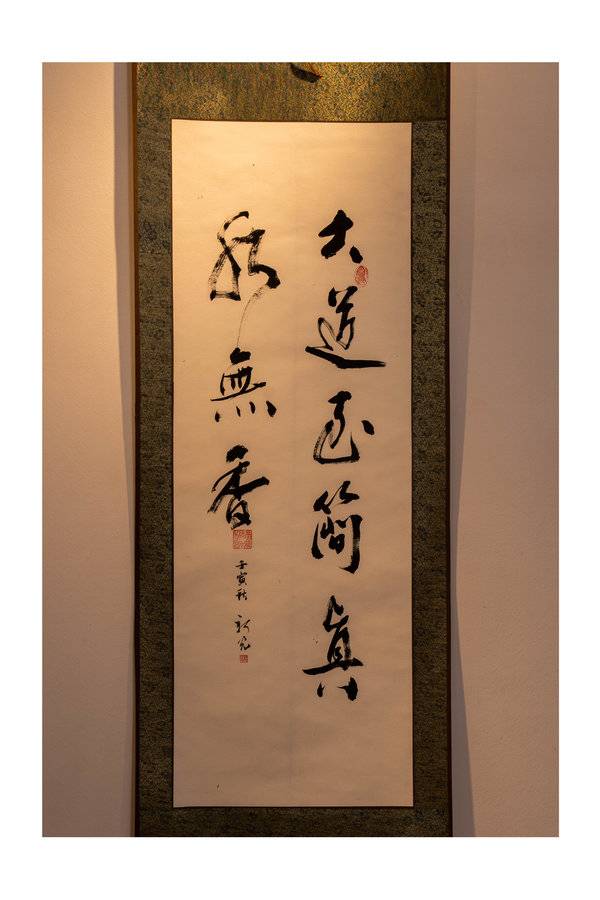 大道至簡真
水無香
壬寅秋